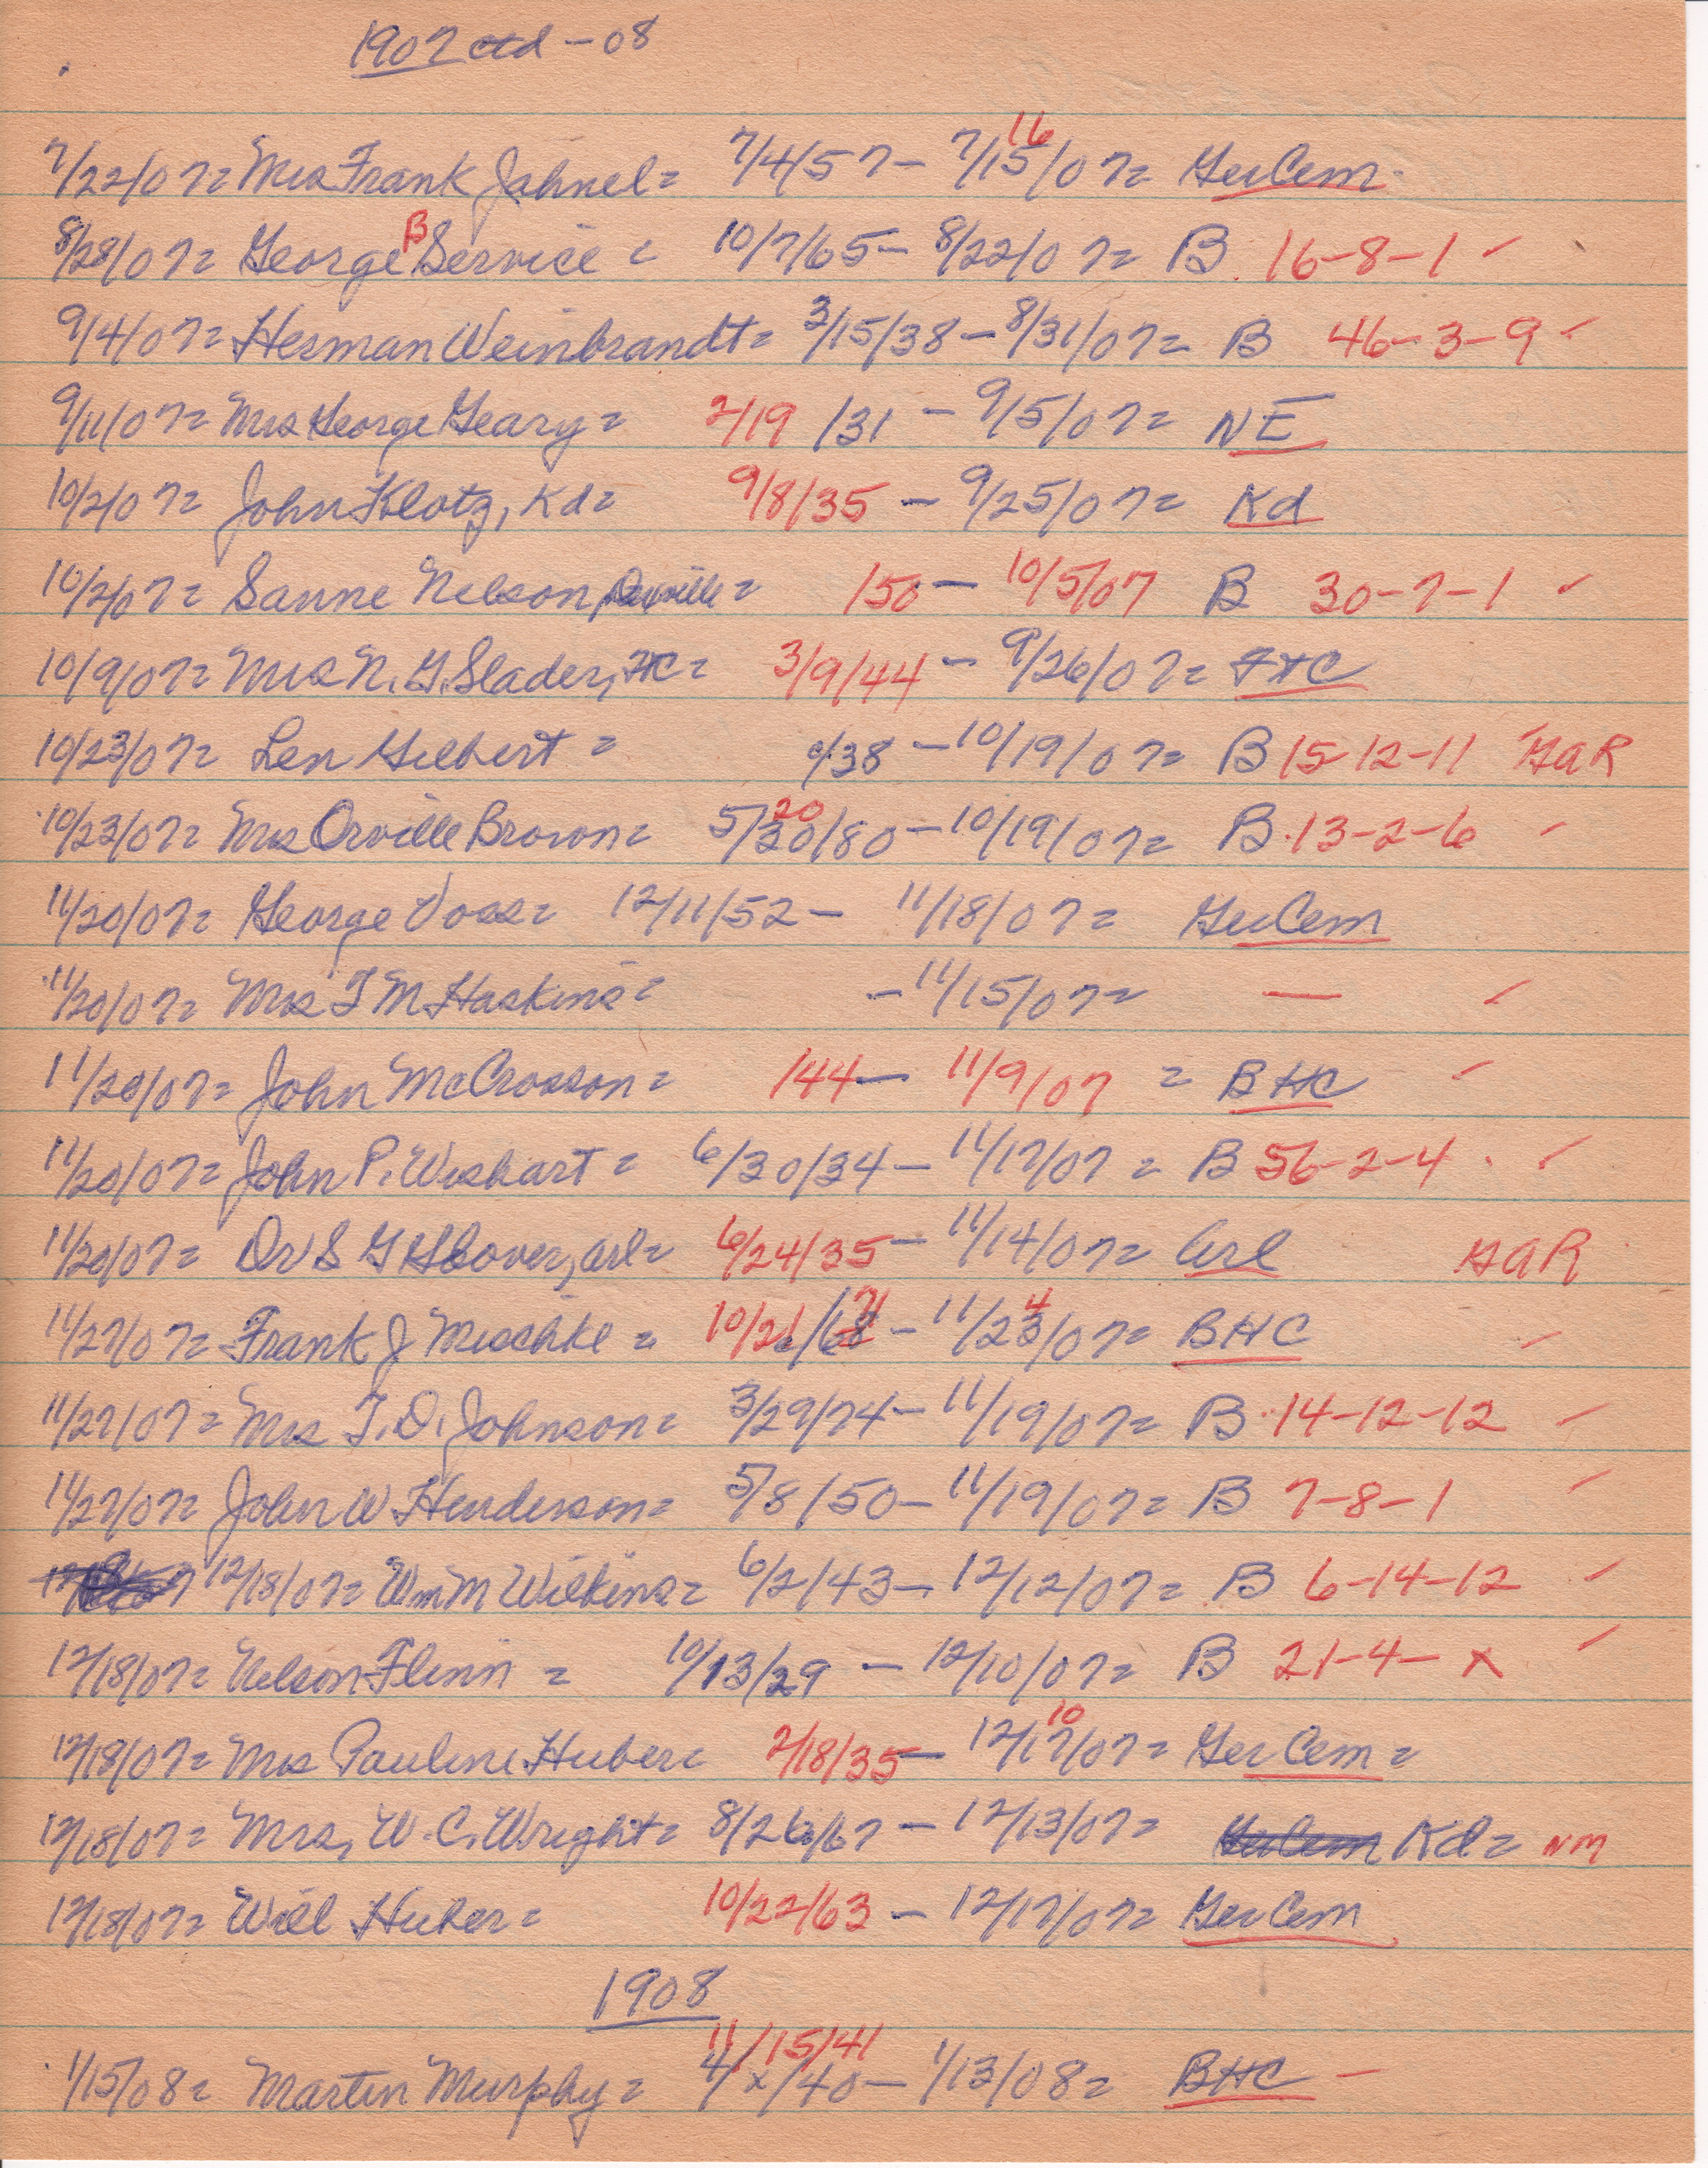 1907 ctd - 08
7/22/07= Mrs Frank Jahnel= 7/4/57 - 7/15/07= GerCem. 16
8/28/07= George B Service = 10/7/65 - 8/22/07= B 16-8-1 ✓
9/4/07= Herman Weinbrandt= 3/15/38 - 8/31/07= B 46-3-9 ✓
9/11/07= Mrs George Geary= 2/19/31 - 9/5/07= NE
10/2/07= John Klotz, Kd= 9/8/35 - 9/25/07= Kd
10/2/07= Sanne Nelson, = 150 - 10/5/07 B 30-7-1 ✓
10/9/07= Mrs N. G. Slader, = 3/9/44 - 9/26/07=
10/23/07= Len Gilbert = /38 - 10/19/07= B 15-12-11 GAR
10/23/07= Mrs Orville Brown= 5/30/80 - 10/19/07= B 13-2-6 ✓ 20
11/20/07= George Voss= 12/11/52 - 11/18/07= GerCem
11/20/07= Mrs T M Haskins= - 11/15/07= — ✓
11/20/07= John McCrosson= 144 - 11/9/07 = BHC ✓
11/20/07= John P. Wishart = 6/30/34 - 11/17/07 = B 56-2-4 ✓
11/20/07= Dr S G Glover, Arl= 6/24/35 - 11/14/07= Arl GAR
11/27/07= Frank J Mischke = 10/21/68 - 11/23/07= BHC ✓ 71 4
11/27/07= Mrs T. D. Johnson= 3/29/74 - 11/19/07= B 14-12-12 ✓
11/27/07= John W Henderson= 5/8/50 - 11/19/07= B 7-8-1 ✓
12/18/07= Wm M Wilkins= 6/2/43 - 12/12/07= B 6-14-12 ✓
12/18/07= Nelson Flinn = 10/13/29 - 12/10/07= B 21-4-x ✓
12/18/07= Mrs Pauline Huber= 2/18/35 - 12/17/07= Ger Cem= 10
12/18/07= Mrs, W. C. Wright= 8/26/67 - 12/13/07= GerCem Kd= NM
12/18/07= Will Huber= 10/22/63 - 12/17/07= GerCem
1908
11/15/41
1/15/08= Martin Murphy= 4/x/40 - 1/13/08= BHC -